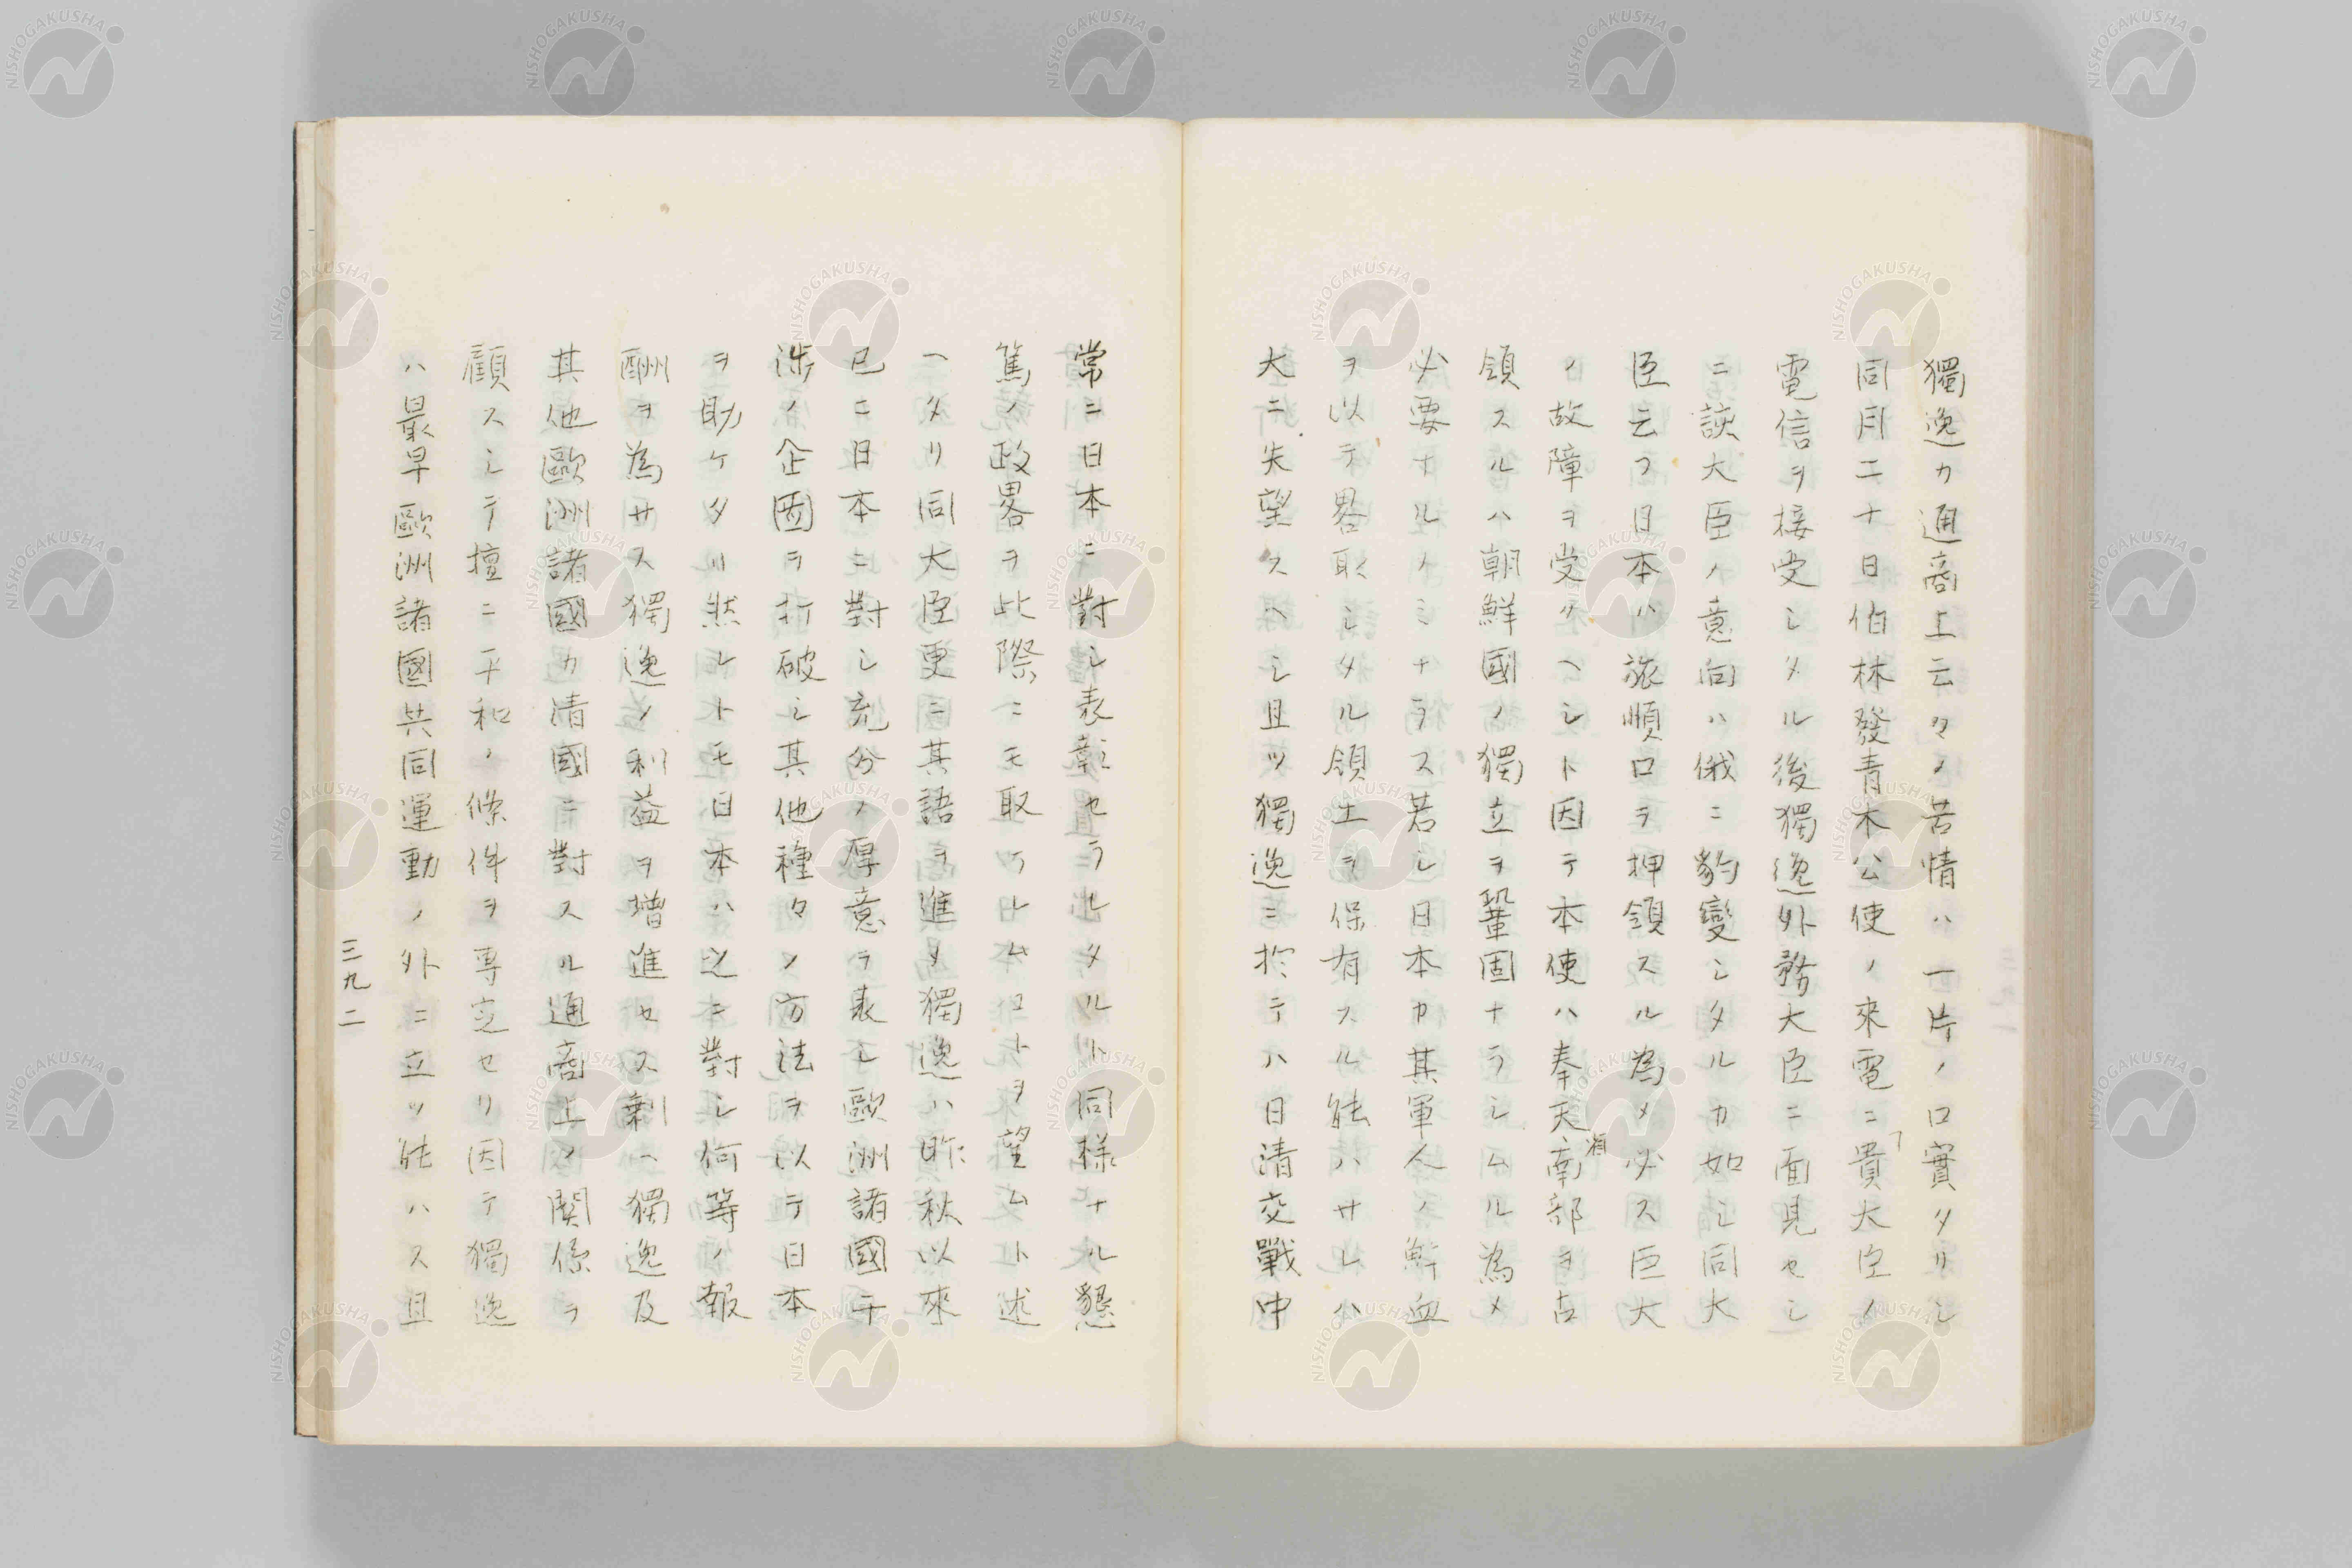 獨逸カ通商上云々ノ苦情ハ一片ノ口實タリシ
同月二十日伯林發青木公使ノ來電ニ「貴大臣ノ
電信ヲ接受シタル後獨逸外務大臣ニ面見セシ
ニ該大臣ノ意向ハ俄ニ豹變シタルカ如シ同大
臣云フ日本ハ旅順口ヲ押領スル為メ必ス巨大
ノ故障ヲ受クヘシト因テ本使ハ奉天省南部ヲ占
領スルハ朝鮮國ノ獨立ヲ鞏固ナラシムル為メ
必要ナルノミナラス若シ日本カ其軍人ノ鮮血
ヲ以テ畧取シタル領土ヲ保有スル能ハサレハ
大ニ失望スヘシ且ツ獨逸ニ於テハ日清交戰中
常ニ日本ニ對シ表彰セラレタルト同樣ナル懇
篤ノ政畧ヲ此際ニモ取ラレムコトヲ望ムト述
ヘタリ同大臣更ニ其語ヲ進メ獨逸ハ昨秋以來
已ニ日本ニ對シ充分ノ厚意ヲ表シ歐洲諸國干
涉ノ企圖ヲ打破シ其他種々ノ方法ヲ以テ日本
ヲ助ケタリ然レトモ日本ハ之ニ對シ何等ノ報
酬ヲ為サス獨逸ノ利益ヲ增進セス剩ヘ獨逸及
其他歐洲諸國カ清國ニ對スル通商上ノ関係ヲ
顧スシテ擅ニ平和ノ條件ヲ專定セリ因テ獨逸
ハ最早歐洲諸國共同運動ノ外ニ立ツ能ハス且
三九二
NISHOGAKUSHA